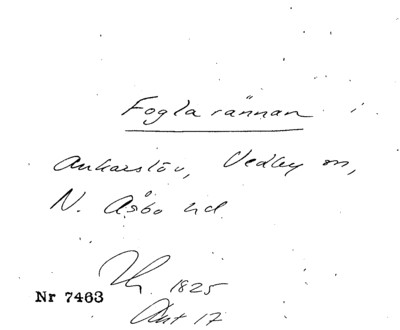 Foglarännan
Ankarslöv, Vedby sn,
N. Åsbo hd
1825
Nr 7463
Akt 17